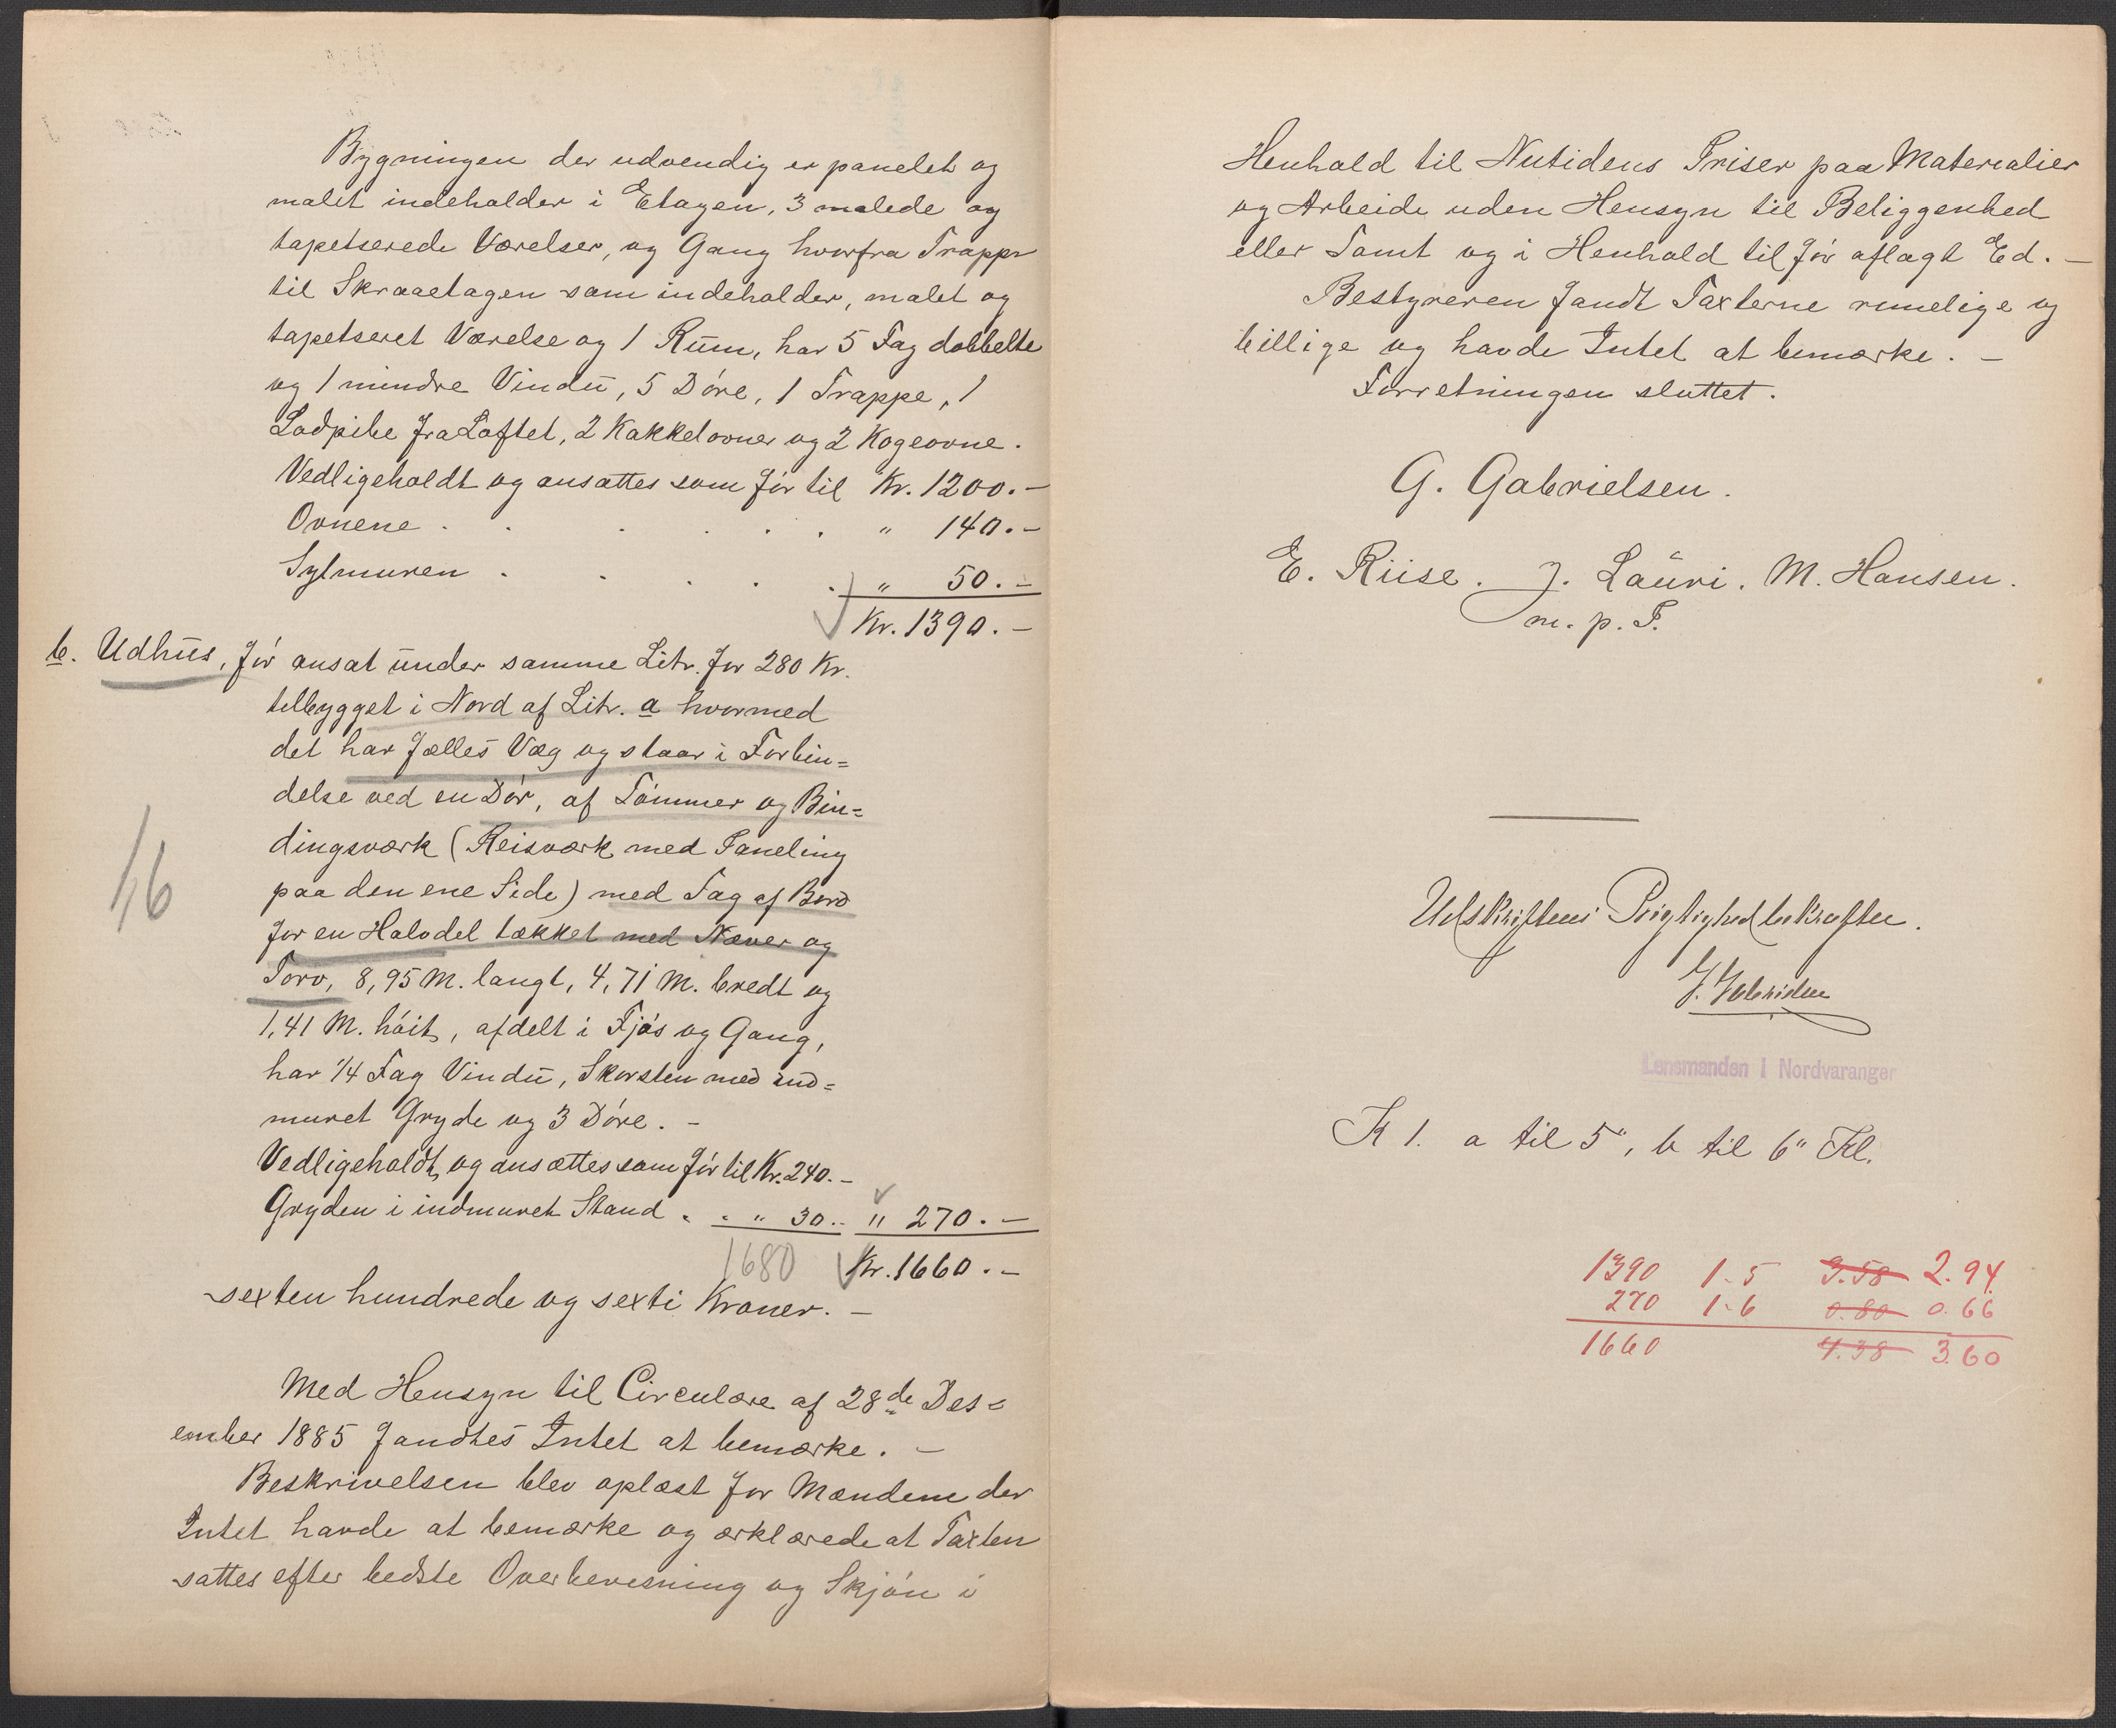 Bygningen der udvendig er panelet og
malet indeholder i Etagen, 3 malede og
tapetserede Værelser, og Gang hvorfra Trappe
til Skraaetagen som indeholder, malet og
tapetseret Værelse og 1 Rum, har 5 Fag dobbelte
og 1 mindre Vindu, 5 Døre, 1 Trappe, 1
Lodpibe fra Loftet, 2 Kakkelovner og 2 Kogeovne.
Vedligeholdt og ansattes som før til Kr. 1200.-
Ovnene . . . . . . " 140.-
Sylmuren . . . . . " 50.-
Kr. 1390.-
b. Udhus, før ansat under samme Litr. for 280 Kr.
tilbygget i Nord af Litr. a hvormed
det har fælles Væg og staar i Forbin=
delse ved en Dør, af Tømmer og Bin=
dingsværk (Reisværk med Paneling
paa den ene Side) med Tag af Bord
for en Halvdel tækket med Næver og
Torv, 8,95 M. langt, 4,71 M. bredt og
1,41 M. høit, afdelt i Fjøs og Gang,
har 1/4 Fag Vindu, Skorsten med ind=
muret Gryde og 3 Døre. -
1/6
Vedligeholdt og ansættes som før til Kr. 240.-
Gryden i indmuret Stand . . " 30.- " 270.-
1680 Kr. 1660.-
sexten hundrede og sexti Kroner. -
Med Hensyn til Circulære af 28de Des=
ember 1885 fandtes Intet at bemærke. -
Beskrivelsen blev oplæst for Mændene der
Intet havde at bemærke og erklærede at Taxten
sattes efter bedste Overbevisning og Skjøn i
Henhold til Nutidens Priser paa Materialier
og Arbeide uden Hensyn til Beliggenhed
eller Tomt og i Henhold til før aflagt Ed. -
Bestyreren fandt Taxterne rimelige og
billige og havde Intet at bemærke. -
Forretningen sluttet.
G. Gabrielsen.
E. Riise. J. Lauri. M. Hansen.
m. p. F.
Udskriftens Rigtighed bekræftes.
G. Gabrielsen
Lensmanden i Nordvaranger
Kl 1. a til 5", b til 6" Kl.
1390 1-5 3.58 2.94
270 1-6 0.80 0.66
1660 4.38 3.60